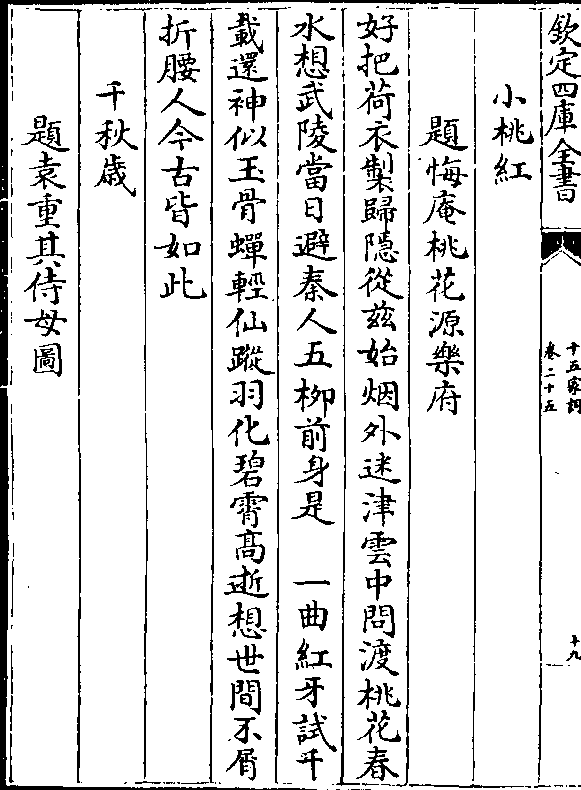 欽定四庫全書
十五家詞
卷二十五
十九
小桃紅
題悔庵桃花源樂府
好把荷衣製歸隱從茲始烟外迷津雲中問渡桃花春
水想武陵當日避秦人五柳前身是　一曲紅牙試千
載還神似玉骨蟬輕仙蹤羽化碧霄高逝想世間不屑
折腰人今古皆如此
千秋歲
題袁重其侍母圖